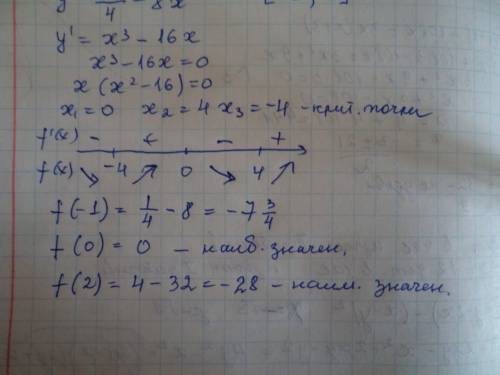 4 - 8x
y' = x³ - 16x
x³ - 16x = 0
x (x² - 16) = 0
x₁ = 0 x₂ = 4 x₃ = -4 - крит. точки
f'(x) - + - +
f(x) ↘ -4 ↗ 0 ↘ 4 ↗
f(-1) = 1/4 - 8 = -7 3/4
f(0) = 0 - наиб. значен.
f(2) = 4 - 32 = -28 - наим. значен.